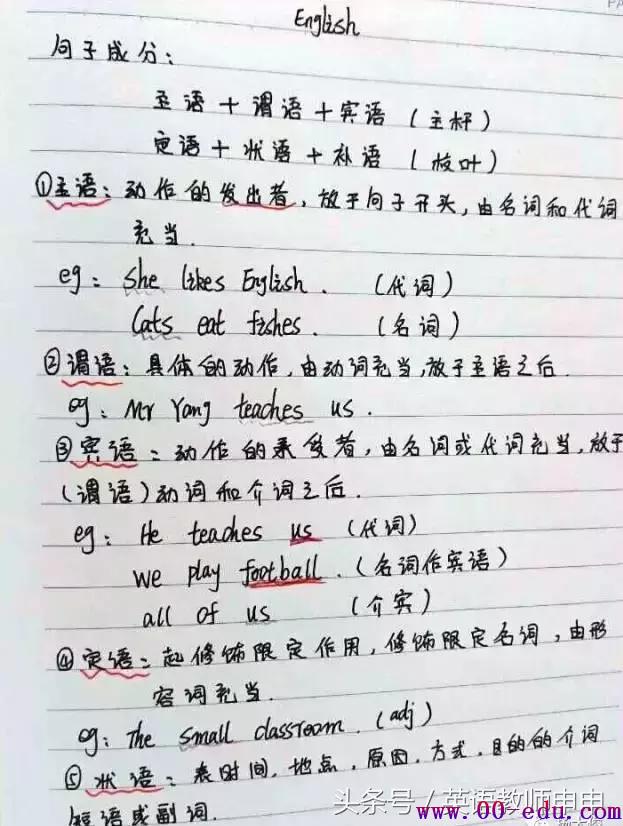 English
句子成分：
主语 + 谓语 + 宾语 (主杆)
定语 + 状语 + 补语 (枝叶)
①主语：动作的发出者，放于句子开头，由名词和代词
充当.
eg: She likes English. (代词)
Cats eat fishes. (名词)
②谓语：具体的动作，由动词充当，放于主语之后.
eg: Mr Yang teaches us.
③宾语：动作的承受者，由名词或代词充当，放于
(谓语)动词和介词之后.
eg: He teaches us (代词)
we play football. (名词作宾语)
all of us (介宾)
④定语：起修饰限定作用，修饰限定名词，由形
容词充当.
eg: The small classroom. (adj)
⑤状语：表时间，地点，原因，方式，目的的介词
短语或副词.
头条号／英语教师申申
www.00-edu.com